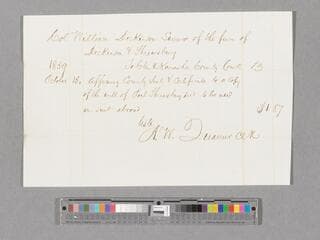 Capt William Dickinson Senior of the firm of
Dickinson & Shrewsbury
1859 To Clk Kanawha County Court Dr
October 18. Affixing County Seal & Certificate to a Copy
of the will of Joel Shrewsbury decd to be used
or sent abroad $1.57
Teste
A. W. Quarrier Clk